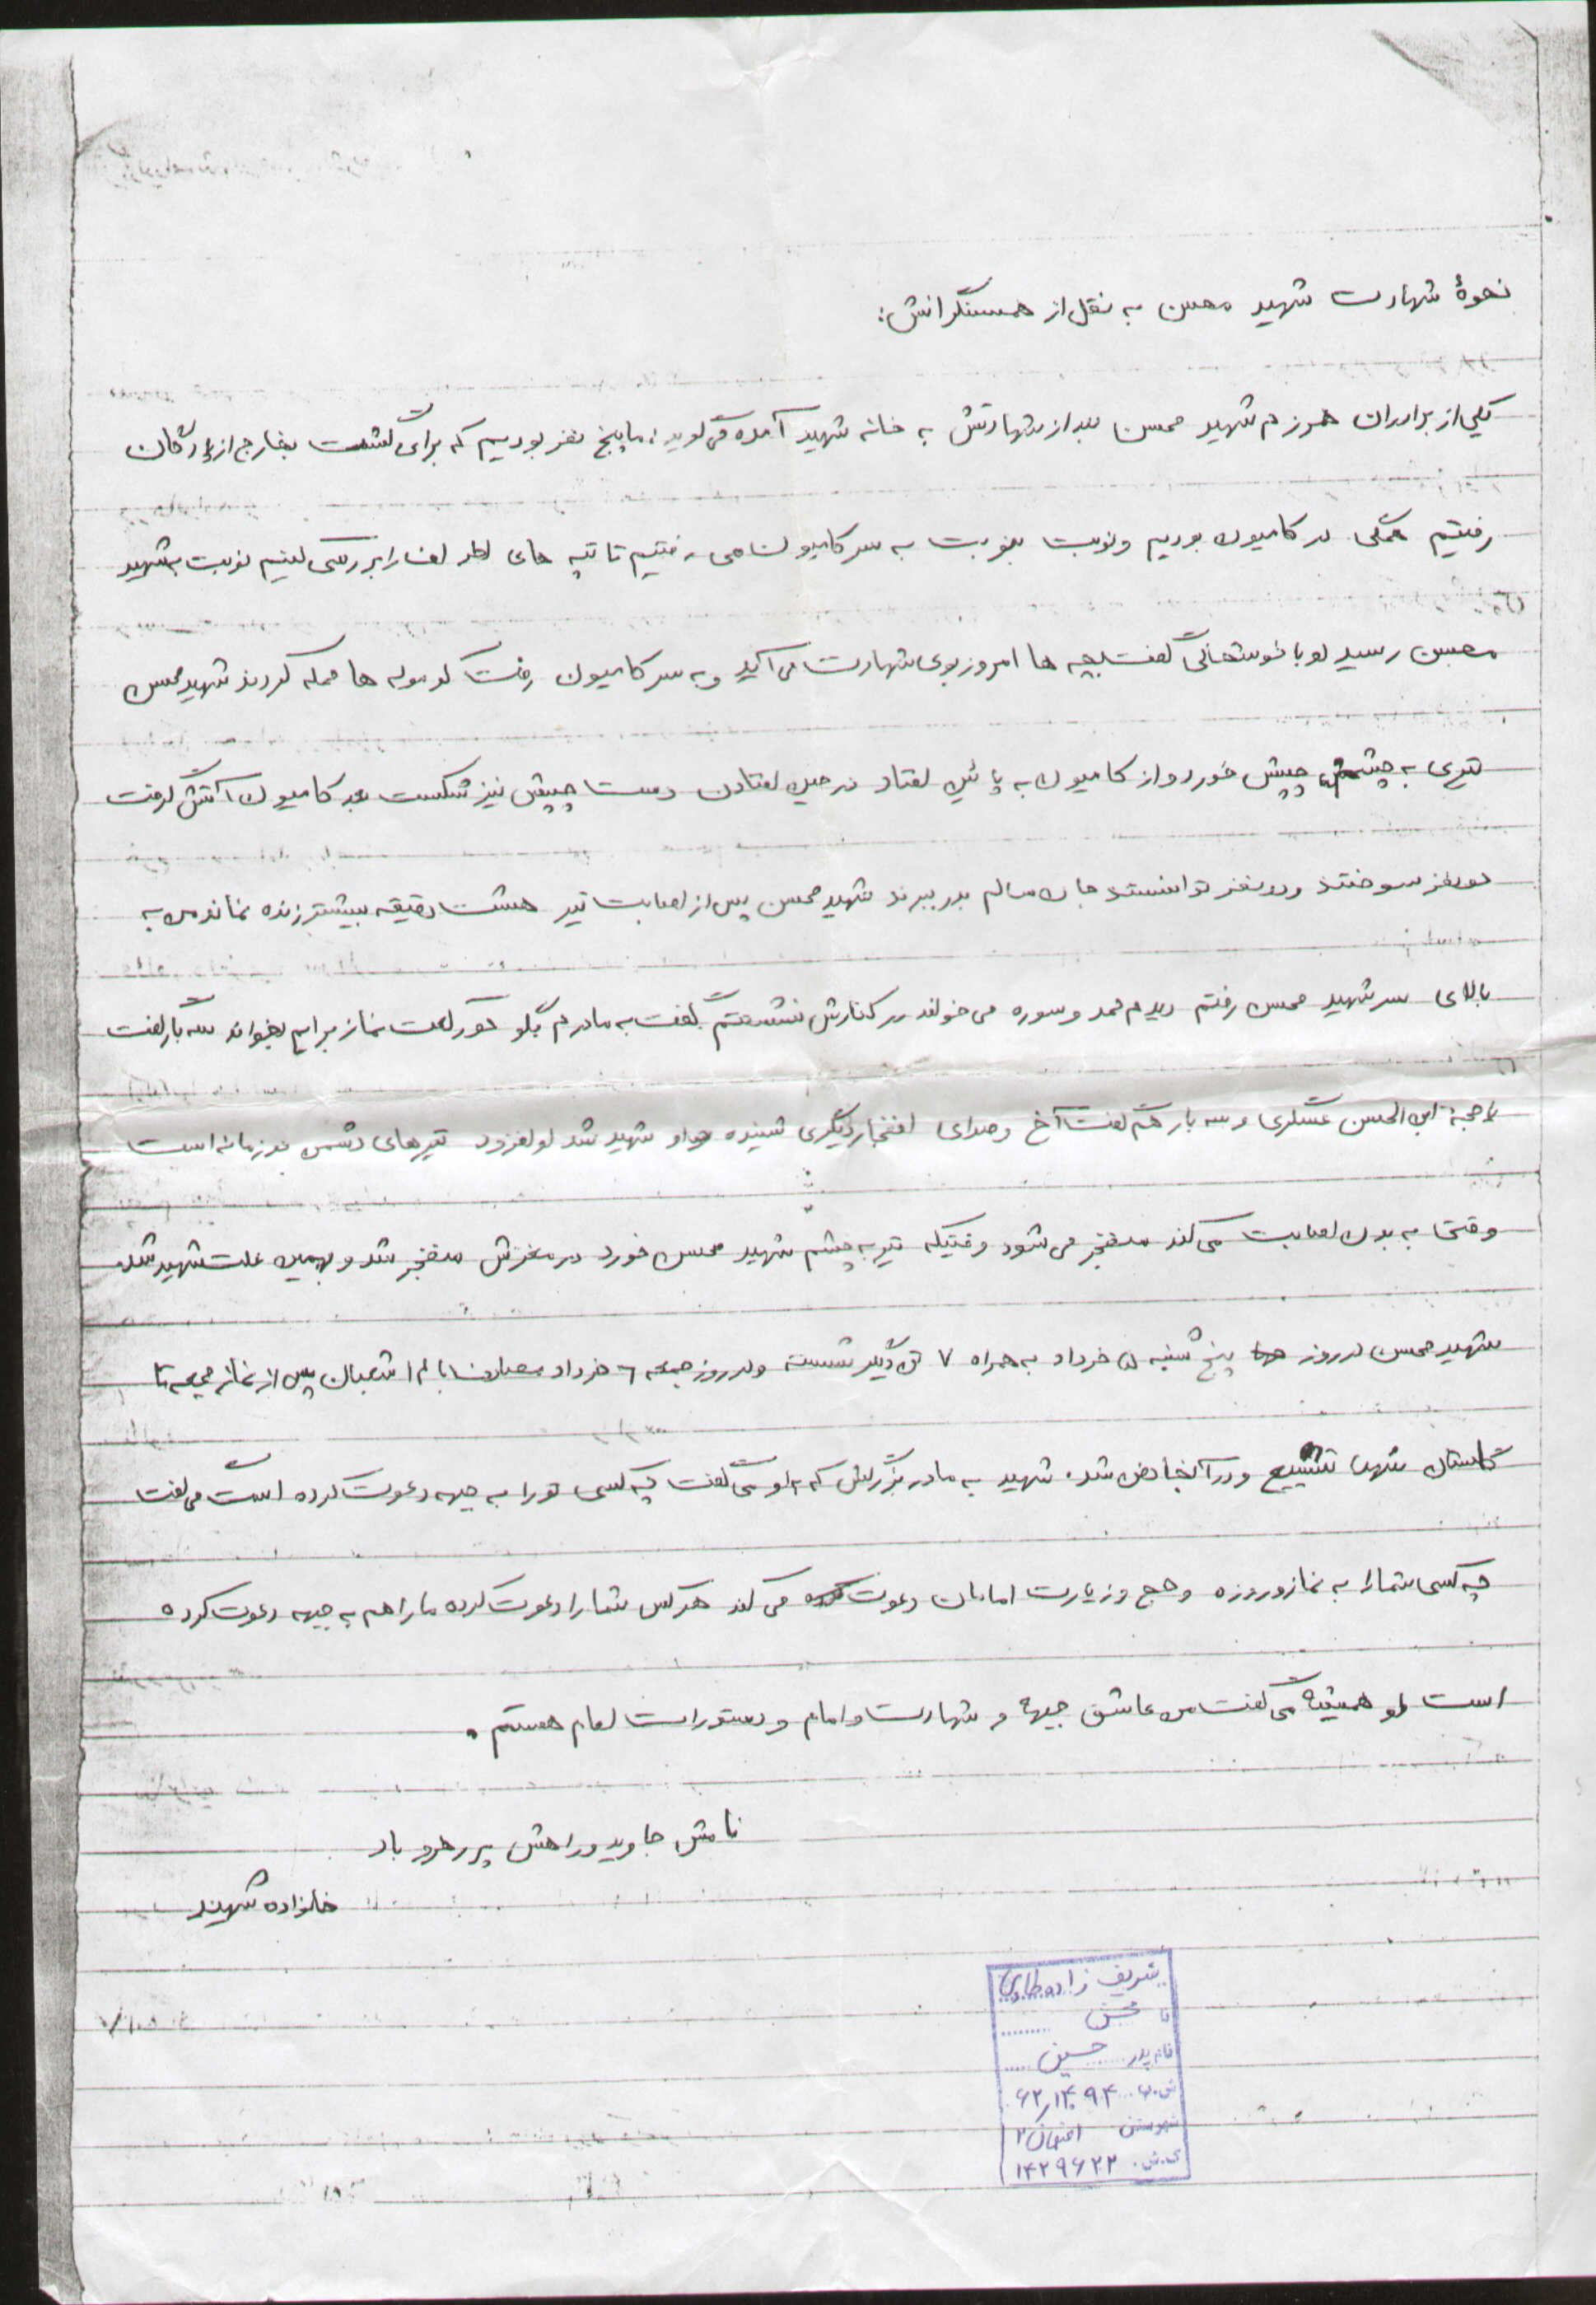 نحوهٔ شهادت شهید محسن به نقل از همسنگرانش:
یکی از برادران همرزم شهید محسن بعد از شهادتش به خانه شهید آمده می‌گوید: ما پنج نفر بودیم که برای گشت بخارج از پادگان
رفتیم همگی در کامیون بودیم و نوبت بنوبت به سر کامیون می رفتیم تا تپه های اطراف را بررسی کنیم نوبت به شهید
محسن رسید او با خوشحالی گفت بچه ها امروز بوی شهادت می آید و به سر کامیون رفت کومله ها حمله کردند شهید محسن
تیری به چشم چپش خورد و از کامیون به پائین افتاد در حین افتادن دست چپش نیز شکست کامیون آتش گرفت
دو نفر سوختند و دو نفر توانستند جان سالم بدر ببرند شهید محسن پس از اصابت تیر هشت دقیقه بیشتر زنده نماند من به
بالای سر شهید محسن رفتم دیدم حمد و سوره می خواند در کنارش نشستم گفت به مادرم بگو دو رکعت نماز برایم بخواند سه بار گفت
یا حجة ابن الحسن عسگری و سه بار هم گفت آخ و صدای انفجار دیگری شنیده و او شهید شد او افزود تیرهای دشمن دوزمانه است
وقتی به بدن اصابت می کند منفجر می شود وقتیکه تیر به چشم شهید محسن خورد در مغزش منفجر شد و بهمین علت شهید شد.
شهید محسن در روز پنج شنبه ۵ خرداد به همراه ۷ تن دیگر و در روز جمعه ۶ خرداد مصادف با ۱۴ شعبان پس از نماز جمعه تا
گلستان شهدا تشییع و در آنجا دفن شد. شهید به مادر بزرگش که به او می گفت چه کسی تو را به جبهه دعوت کرده است می گفت
چه کسی شما را به نماز و روزه و حج و زیارت امامان دعوت می کند هر کس شما را دعوت کرده ما را هم به جبهه دعوت کرده
است او همیشه می گفت من عاشق جبهه و شهادت و امام و دستورات امام هستم.
نامش جاوید و راهش پر رهرو باد
خانواده شهید
شریف زاده
محسن
نام پدر حسین
شهرستان اصفهان ۲
۱۴۲۹۶۲۲